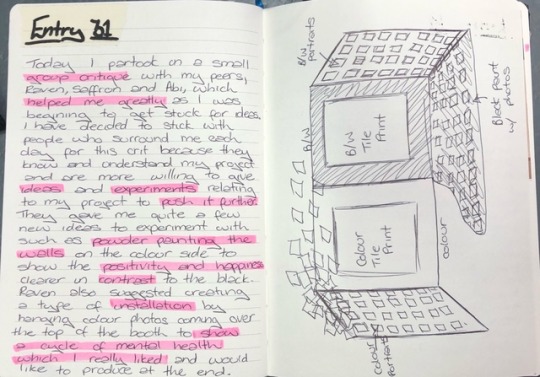 Entry 31
Today I partook in a small
group critique with my peers,
Raven, Saffron and Abi, which
helped me greatly as I was
begining to get stuck for ideas.
I have decided to stick with
people who surround me each
day for this unit because they
know and understand my project
and are more willing to give
ideas and experiments relating
to my project to push it further.
They gave me quite a few
new ideas to experiment with
such as powder painting the
walls on the colour side to
show the positivity and happiness
clearer in contrast to the black.
Raven also suggested creating
a type of installation by
hanging colour photos coming over
the top of the booth to show
a cycle of mental health
which I really liked and would
like to produce at the end.
B/W
portraits
B/W
Tile
Print
Black paint
w/
photos
B/W
Colour
Tile
Print
colour
colour
portraits